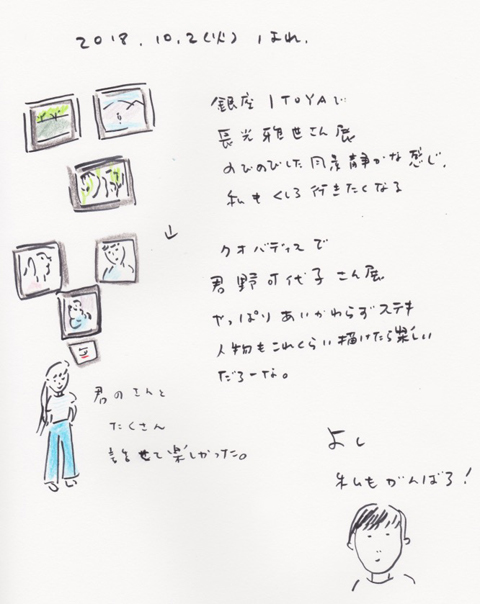 2018.10.2(火) はれ.
銀座 ITOYAで
長光雅世さん展
のびのびした 静かな感じ.
私も くしろ 行きたくなる
↓
クオバディスで
君野可代子さん展
やっぱり あいかわらず ステキ
人物も これくらい 描けたら楽しい
だろーな。
君のさんと
たくさん
話せて楽しかった。
よし
私もがんばろ!